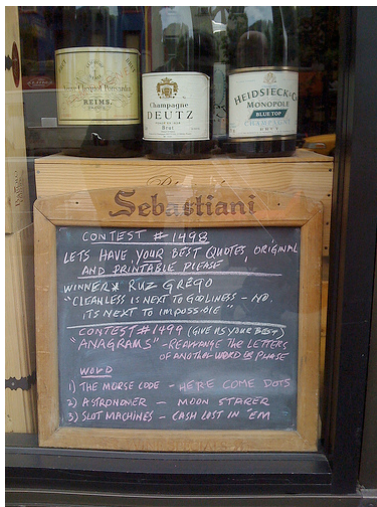 REIMS
Champagne
DEUTZ
Brut
HEIDSIECK & Co
MONOPOLE
BLUE TOP
CHAMPAGNE
Sebastiani
CONTEST # 1498
LETS HAVE YOUR BEST QUOTES, ORIGINAL
AND PRINTABLE PLEASE
WINNER RUZ GREGO
"CLEANLESS IS NEXT TO GODLINESS - NO.
ITS NEXT TO IMPOSSIBLE"
CONTEST # 1499 (GIVE US YOUR BEST)
"ANAGRAMS" - REARRANGE THE LETTERS
OF ANOTHER WORD OR PHASE
WORD
1) THE MORSE CODE - HERE COME DOTS
2) ASTRONOMER - MOON STARER
3) SLOT MACHINES - CASH LOST IN 'EM